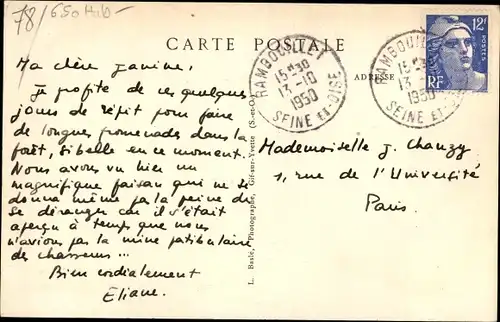 78/650 Hab
CARTE POSTALE
ADRESSE
RAMBOUILLET
15H30
13-10
1950
SEINE ET OISE
RAMBOUILLET
15H30
13-10
1950
SEINE ET OISE
12F
POSTES
RF
Ma chère Janine,
Je profite de ces quelques
jours de répit pour faire
de longues promenades dans la
forêt, si belle en ce moment.
Nous avons vu hier un
magnifique faisan qui ne se
donna même pas la peine de
se déranger car il s'était
aperçu à temps que nous
n'avions pas la mine patibulaire
des chasseurs ...
Bien cordialement
Eliane.
L. Basle, Photographe, Gif-sur-Yvette (S.-et-O.)
Mademoiselle J. Chanzy
1, rue de l'Université
Paris.